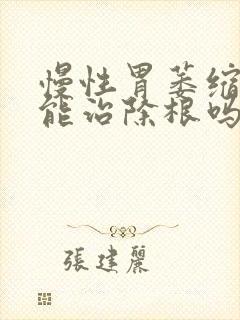 慢性胃萎缩
能治除根吗
張建麗